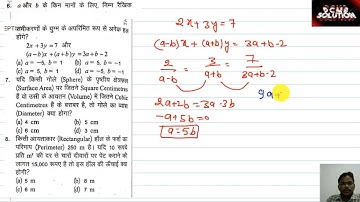 6. a और b के किन मानों के लिए, निम्न रैखिक
समीकरणों के युग्म के अपरिमित रूप से अनेक
हल होंगे?
2x + 3y = 7 और
(a–b)x + (a+b)y = 3a+b–2
(a) a = 5, b = 1
(c) a = 5, b = –1
7. यदि किसी गोले (Sphere) के पृष्ठीय क्षेत्रफल
(Surface Area) पर जितने Square Centimetres
हैं वो उसी के आयतन (Volume) में जितने Cubic
Centimetres हैं के बराबर है, तो गोले का व्यास
(Diameter) क्या होगा?
(a) 4 cm (b) 5 cm
(c) 6 cm (d) 3 cm
8. किसी आयताकार (Rectangular) हॉल के फर्श का
परिमाप (Perimeter) 250 m है। यदि 10 रूपये
प्रति m² की दर से चारों दीवारों पर पेंट कराने की
लागत 15,000 रूपये है तो इस हॉल की ऊँचाई क्या
होगी?
(a) 5 m (b) 4 m
(c) 6 m (d) 7 m
2x + 3y = 7
(a-b)x + (a+b)y = 3a+b-2
2/a-b = 3/a+b = 7/3a+b-2
2a+2b = 3a-3b
-a+5b=0
a=5b
9a+
SOLUTION